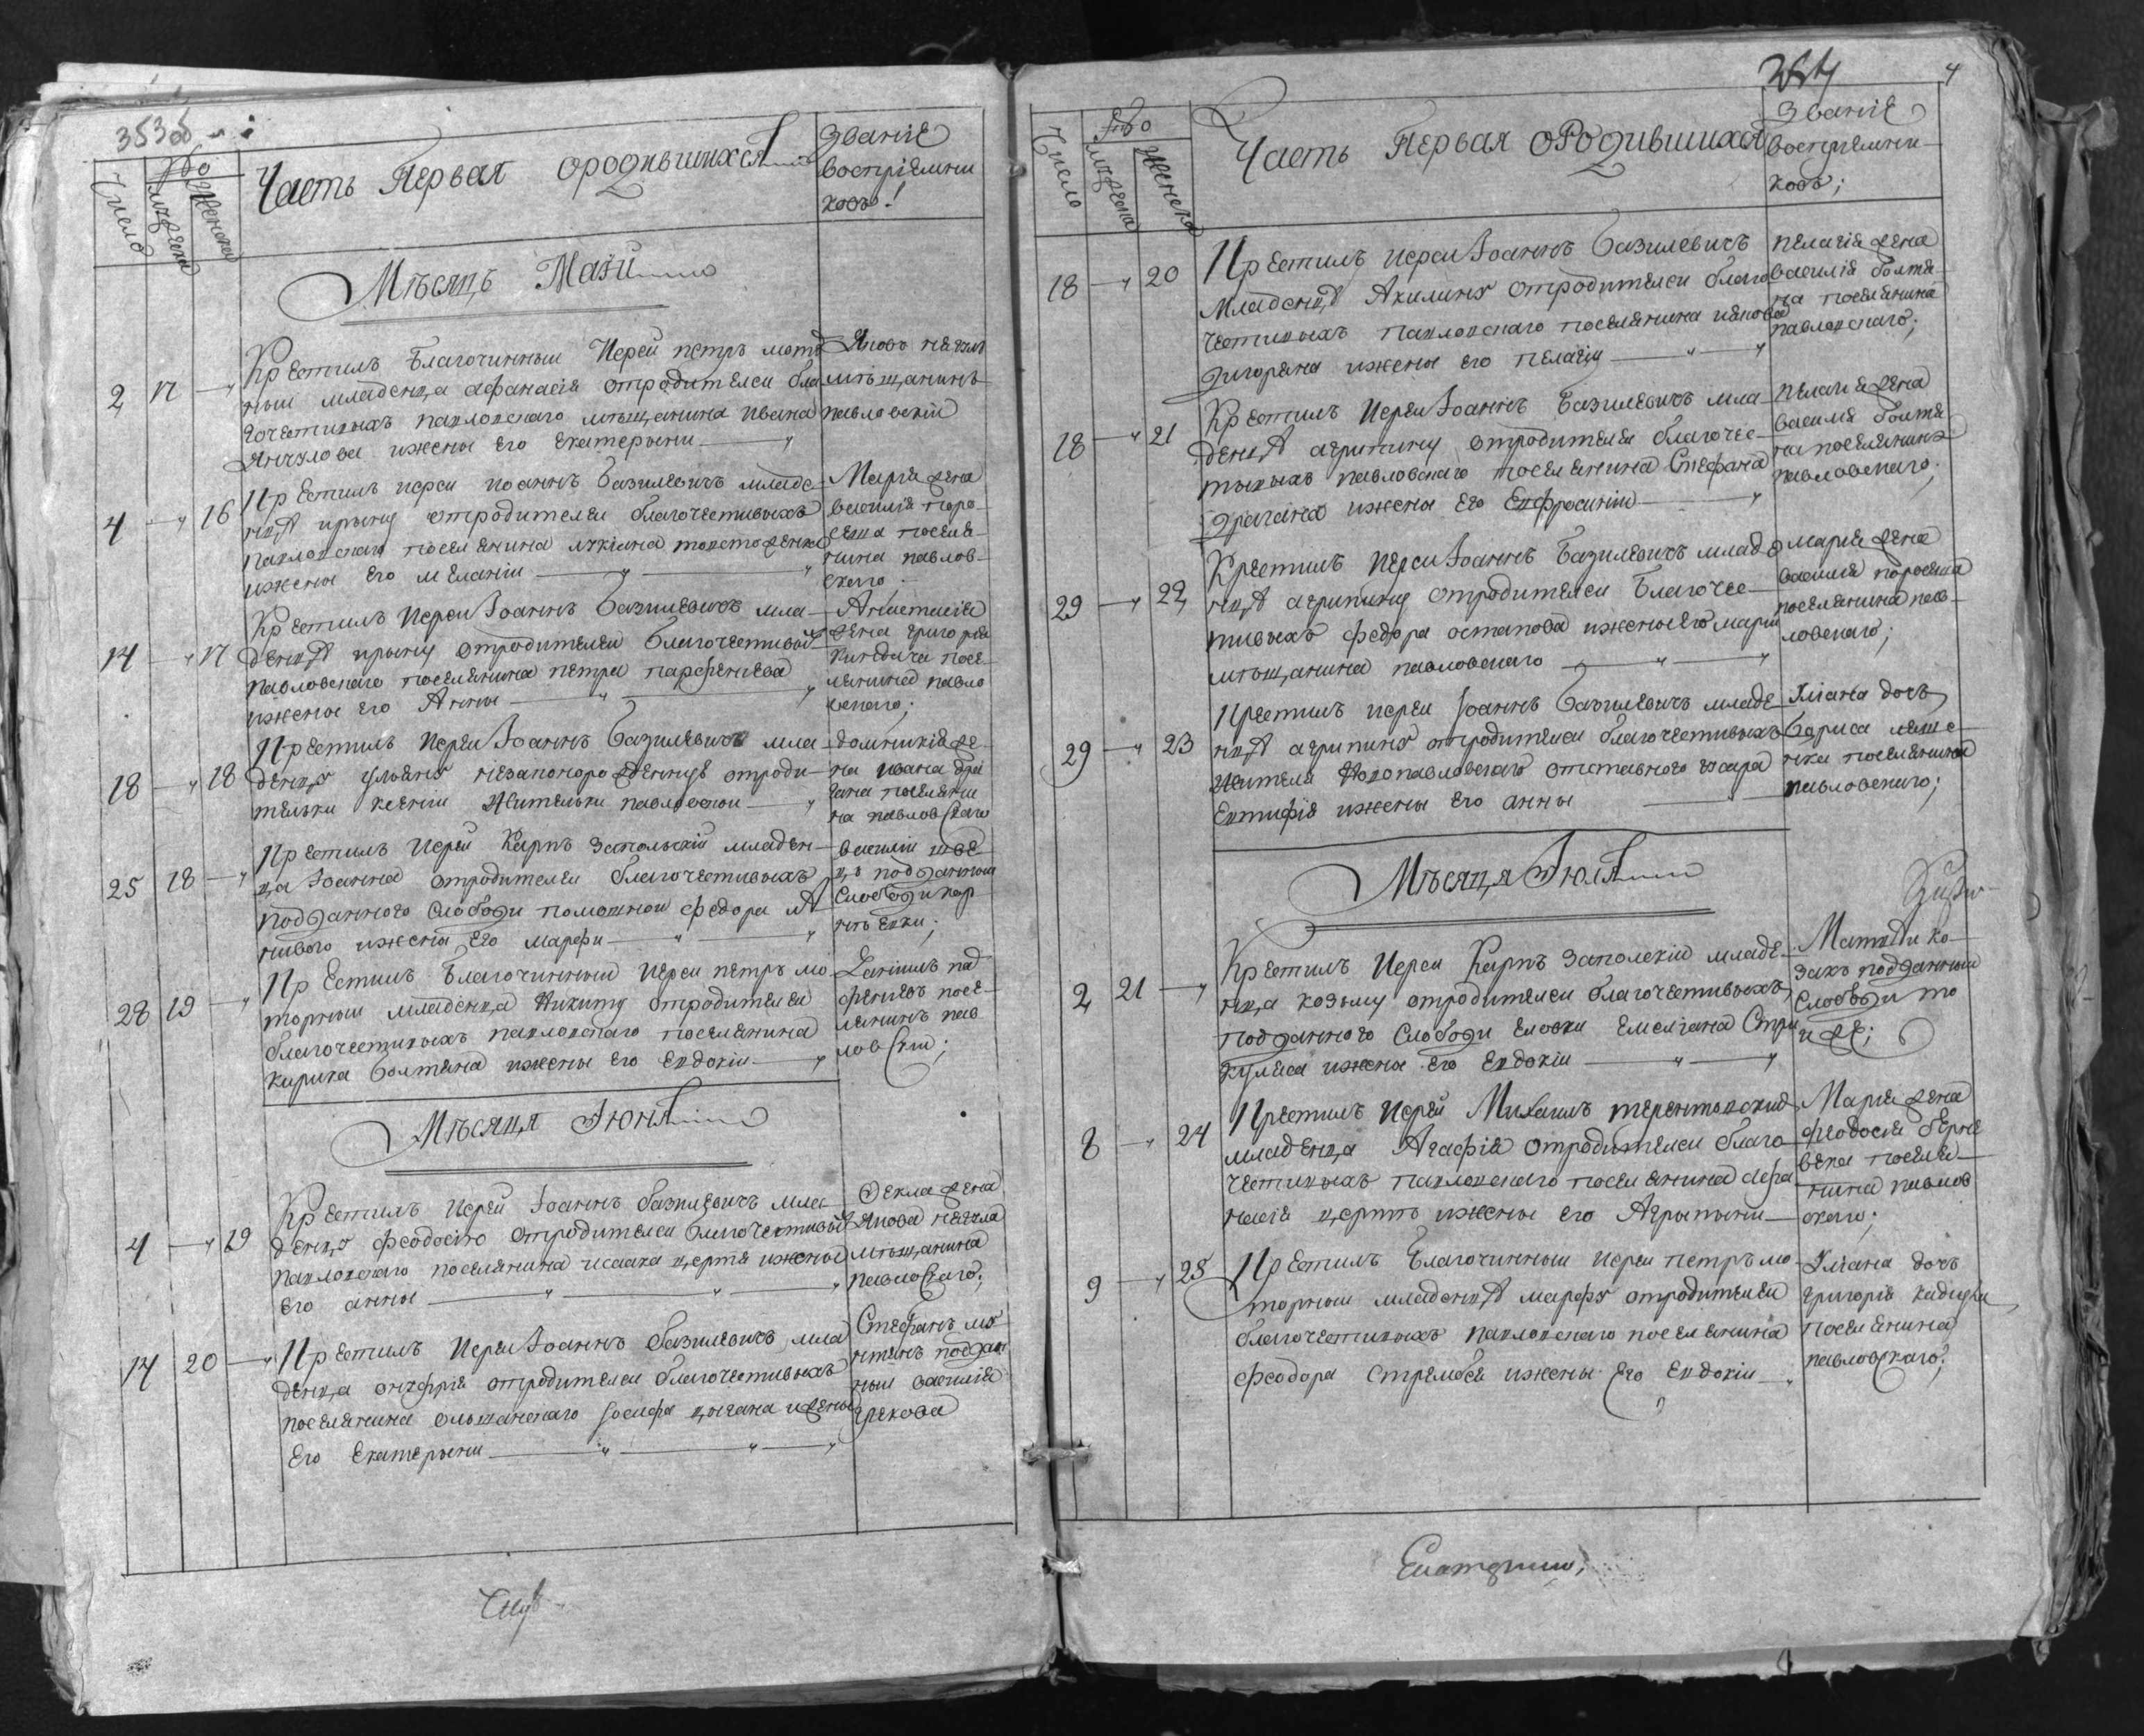 353об
Число
Мужеска
Женска
Часть Первая ородившихся
Званіе
воспріемни
ковъ!
Мѣсяцъ Маій
2 17
Крестилъ Благочинныи Иерей петръ мото
рныи младенца афанасія отродителеи бла
гочестивыхъ павловскаго мѣщанина ивана
ижены его екатерыни
Яковъ
мѣщанинъ
павловскій
4 16
Крестилъ иереи иоаннъ Базилевичъ младе
нця ирыну отродителеи благочестивыхъ
павловскаго поселянина лукіана
ижены его меланіи
Марія жена
василія поро
сяна поселя
нина павлов
скаго
14 17
Крестилъ Иереи Іоаннъ Базилевичъ мла
денця ирыну отродителеи благочестивыхъ
павловскаго поселянина петра парфенієва
ижены его Анны
Анастасія
жена григорія
посе
лянина павло
вскаго;
18 18
Крестилъ Иереи Іоаннъ Базилевичъ мла
денця ульяну незаконорожденную отроди
тельки ксеніи жительки павловскои
домникія же
на ивана дра
гана поселяни
на павловскаго
25 18
Крестилъ Иереи Карпъ Запольскій младен
ца Іоанна отродителеи благочестивыхъ
подданного слободи помошнои федора
ижены его марфи
василіи шве
ць подданныи
слободи кар
пѣвки;
28 19
Крестилъ Благочинныи иереи петръ мо
торныи младенца Никиту отродителеи
благочестивыхъ павловскаго поселянина
кирика болтяна ижены его евдокіи
Даніилъ пар
фениевъ посе
лянинъ пав
ловскіи;
Мѣсяця Іюня
4 19
Крестилъ Иерей Іоаннъ базилевичъ мла
денця феодосію отродителеи благочестивыхъ
павловскаго поселянина исаака церта ижены
его анны
Өекла жена
Якова
мѣщанина
павловскаго;
14 20
Крестилъ Иереи Іоаннъ базилевичъ мла
денца онуфрія отродителеи благочестивыхъ
поселянина ольшанскаго Іосифа цыгана ижены
Его Екатерыни
Стефанъ мо
нтянъ поддан
ныи василія
грекова
264
4
Число
Мужеска
Женска
Часть Первая оРодившихся
Званіе
воспріемни
ковъ;
18 20
Крестилъ иереи Іоаннъ Базилевичъ
Младенця Акилину отродителеи благо
честивыхъ павловскаго поселянина
григорана ижены его пелагіи
пелагія жена
василія болтя
на поселянина
павловскаго;
18 21
Крестилъ Иереи Іоаннъ Базилевичъ мла
денця агрипину отродителеи благочес
тивыхъ павловскаго поселянина Стефана
драгана ижены его Евфросиніи
пелагія жена
василя болтя
на поселянина
павловскаго;
29 22
Крестилъ Иереи Іоаннъ Базилевичъ младе
нця агрипину отродителеи Благочес
тивыхъ федора остапова ижены его марии
мѣщанина павловскаго
марія жена
василія поросяна
поселянина пав
ловскаго;
29 23
Крестилъ иереи Іоаннъ базилевичъ младе
нця агрипину отродителеи благочестивыхъ
жителя Новопавловскаго отставного гусара
Евтифія ижены его анны
Уліана дочь
бориса
поселянина
павловскаго;
Мѣсяця Іюля
2 21
Крестилъ Иереи Карпъ Заполскіи младе
нца козьму отродителеи благочестивыхъ
подданного слободи еловки Емеліана Стри
куляса ижены его евдокіи
Матвѣи ко
закъ подданныи
слободи то
и же;
8 24
Крестилъ Иерей Михаилъ
младенца Агафія отродителеи благо
честивыхъ павловскаго поселянина афа
насія цертъ ижены его Агрыпыни
Марія жена
феодосія
поселя
нина павлов
скаго;
9 25
Крестилъ Благочинныи иереи петръ мо
торныи младенця марфу отродителеи
благочестивыхъ павловскаго поселянина
феодора ижены его евдокіи
Уліана дочь
григорія
поселянина
павловскаго;